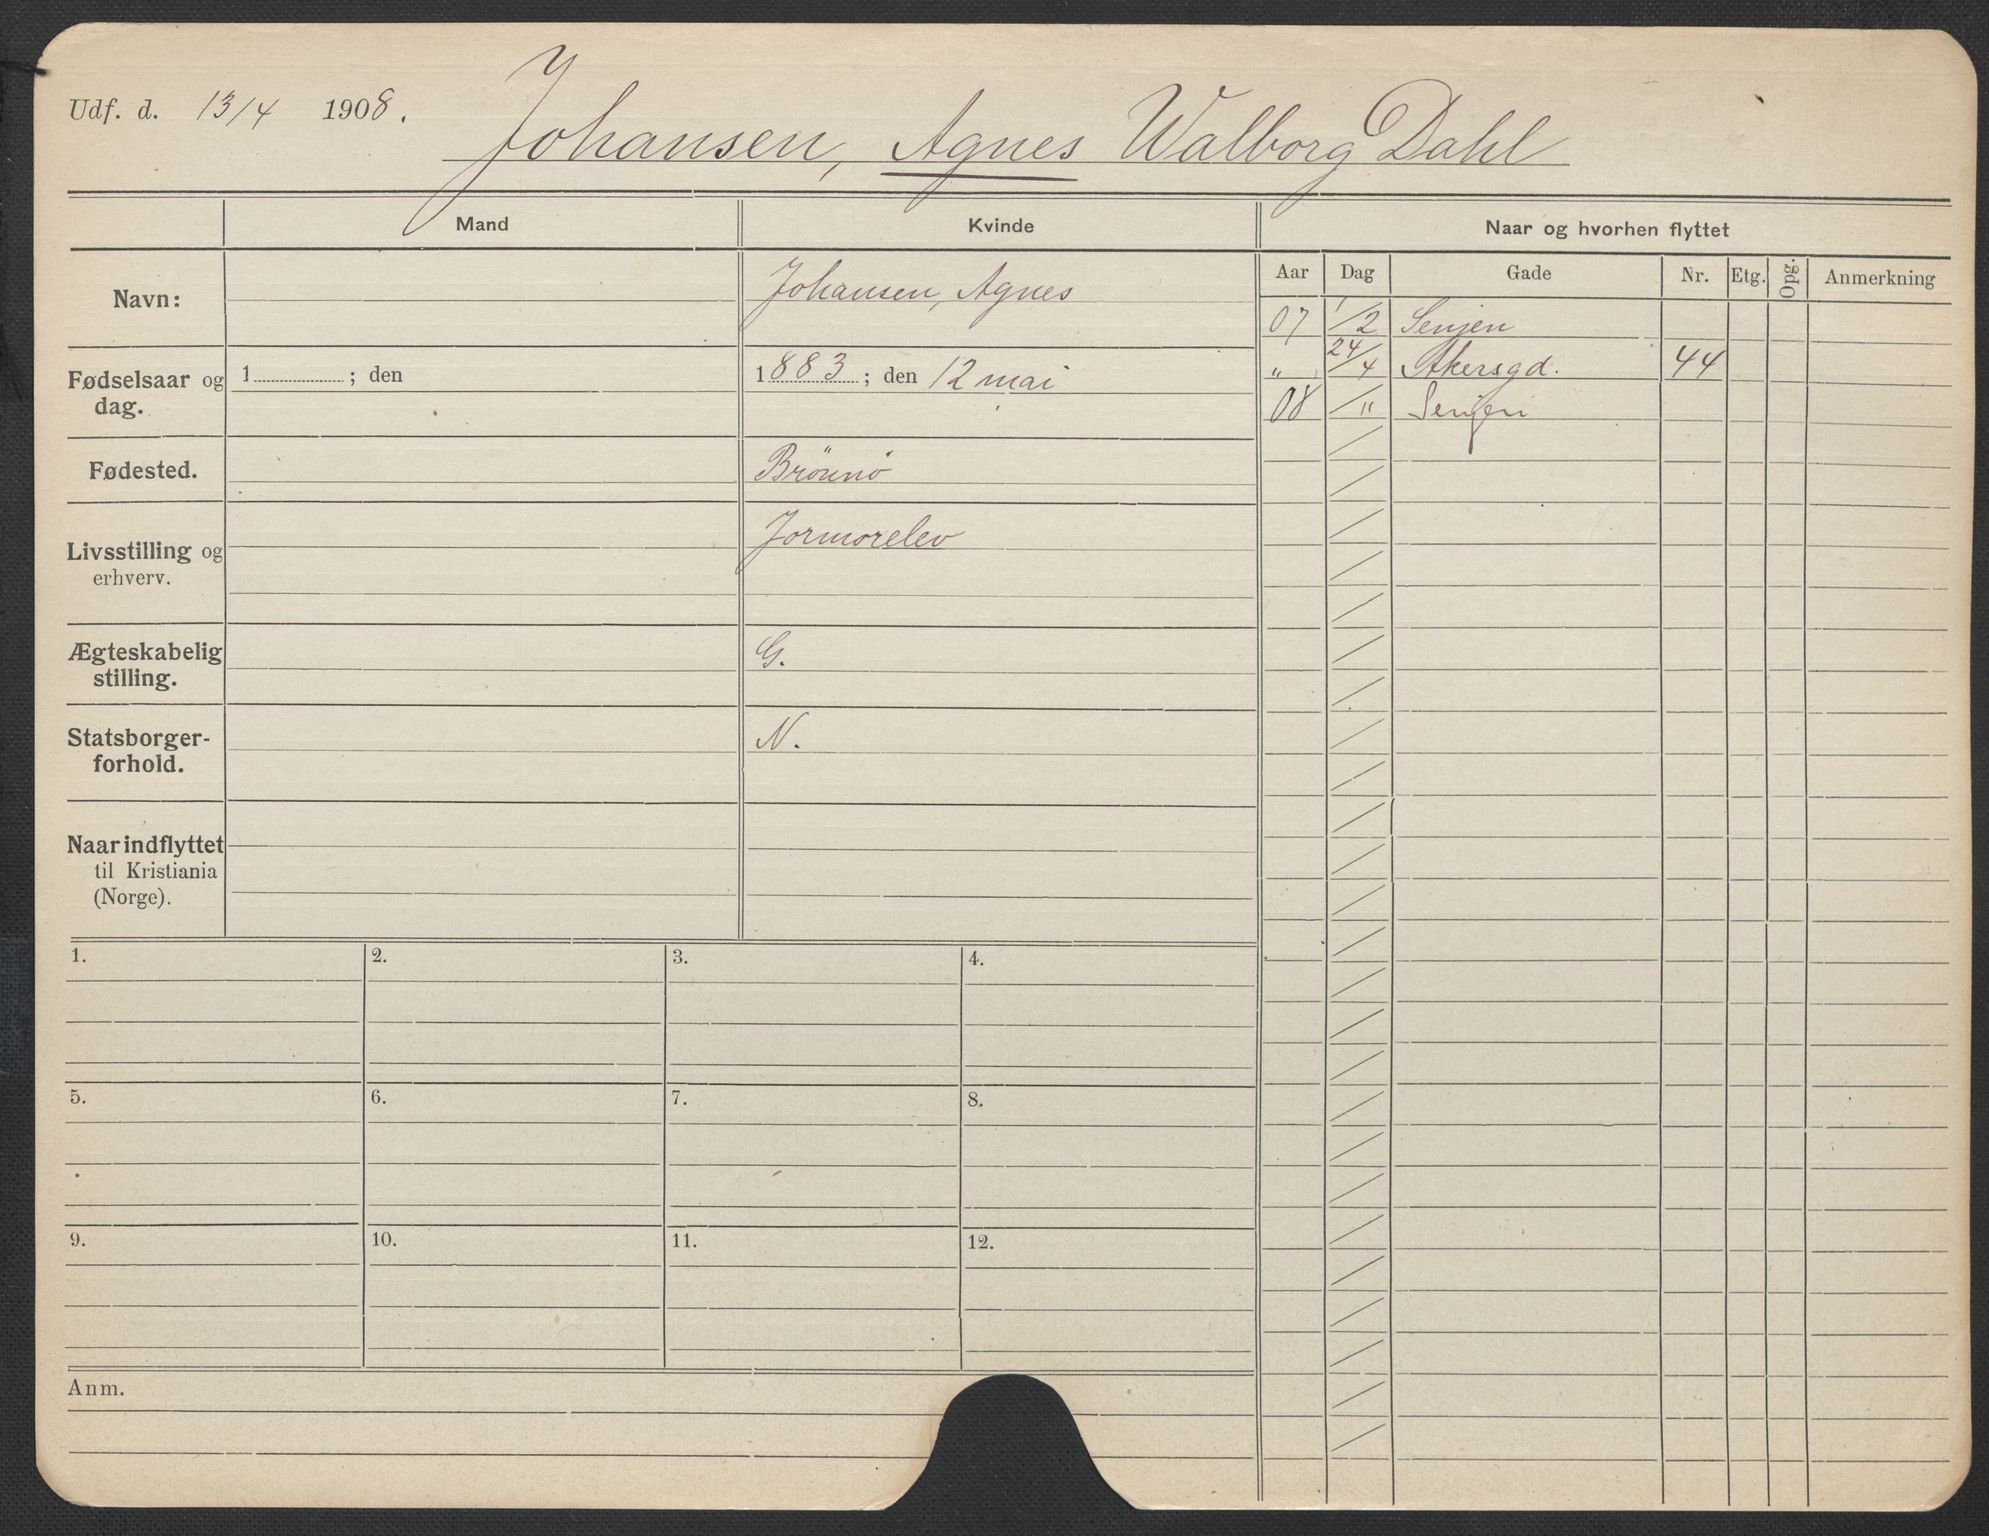 Udf. d. 13/4 1908.
Johansen, Agnes Walborg Dahl
Mand Kvinde Naar og hvorhen flyttet
Aar Dag Gade Nr. Etg. Opg. Anmerkning
Navn: Johansen, Agnes
07 1/2 Senjen
" 24/4 Akersgd. 44
08 / " Senjen
Fødselsaar og 1 ; den 1883 ; den 12 mai
dag.
Fødested. Brönnö
Livsstilling og Jormorelev
erhverv.
Ægteskabelig G.
stilling.
Statsborger- N.
forhold.
Naar indflyttet
til Kristiania
(Norge).
1. 2. 3. 4.
5. 6. 7. 8.
9. 10. 11. 12.
Anm.